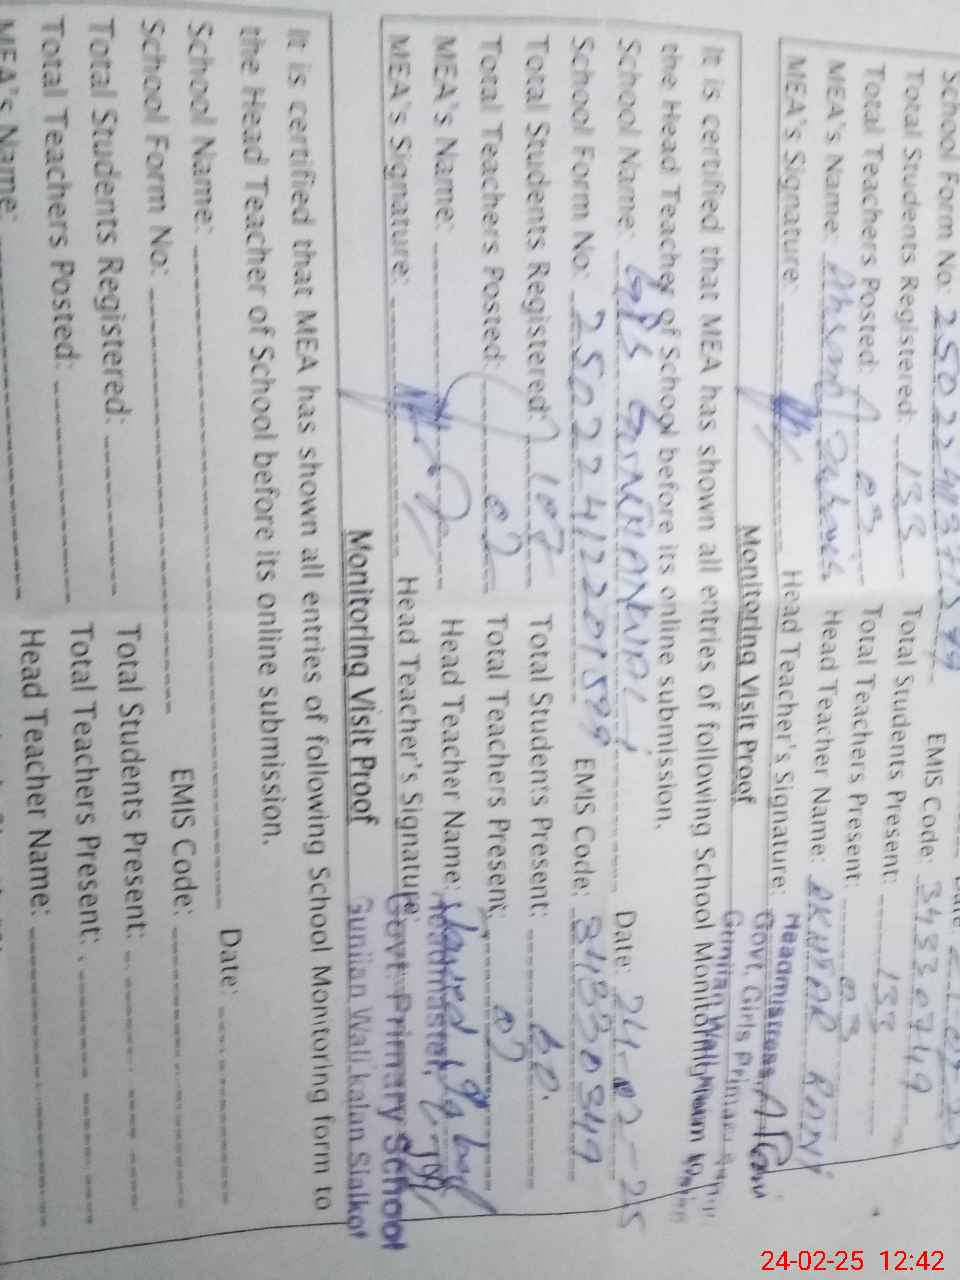 School Form No:
EMIS Code: 34330749
Total Students Registered: 133 Total Students Present: 133
Total Teachers Posted: 03 Total Teachers Present: 03
MEA's Name: Head Teacher Name: AKHTAR RANI
MEA's Signature: Head Teacher's Signature:
Headmistress
Govt. Girls Primary
Monitoring Visit Proof
It is certified that MEA has shown all entries of following School Monitoring form to
the Head Teacher of School before its online submission.
School Name: GPS Date: 24-02-25
School Form No: EMIS Code: 34330349
Total Students Registered: Total Students Present: 60.
Total Teachers Posted: 02 Total Teachers Present: 02
MEA's Name: Head Teacher Name: Javed Iqbal
MEA's Signature: Head Teacher's Signature:
Headmaster,
Govt. Primary School
Gunjian Wali kalan Sialkot
Monitoring Visit Proof
It is certified that MEA has shown all entries of following School Monitoring form to
the Head Teacher of School before its online submission.
School Name: Date:
School Form No: EMIS Code:
Total Students Registered: Total Students Present:
Total Teachers Posted: Total Teachers Present:
MEA's Name: Head Teacher Name:
24-02-25 12:42